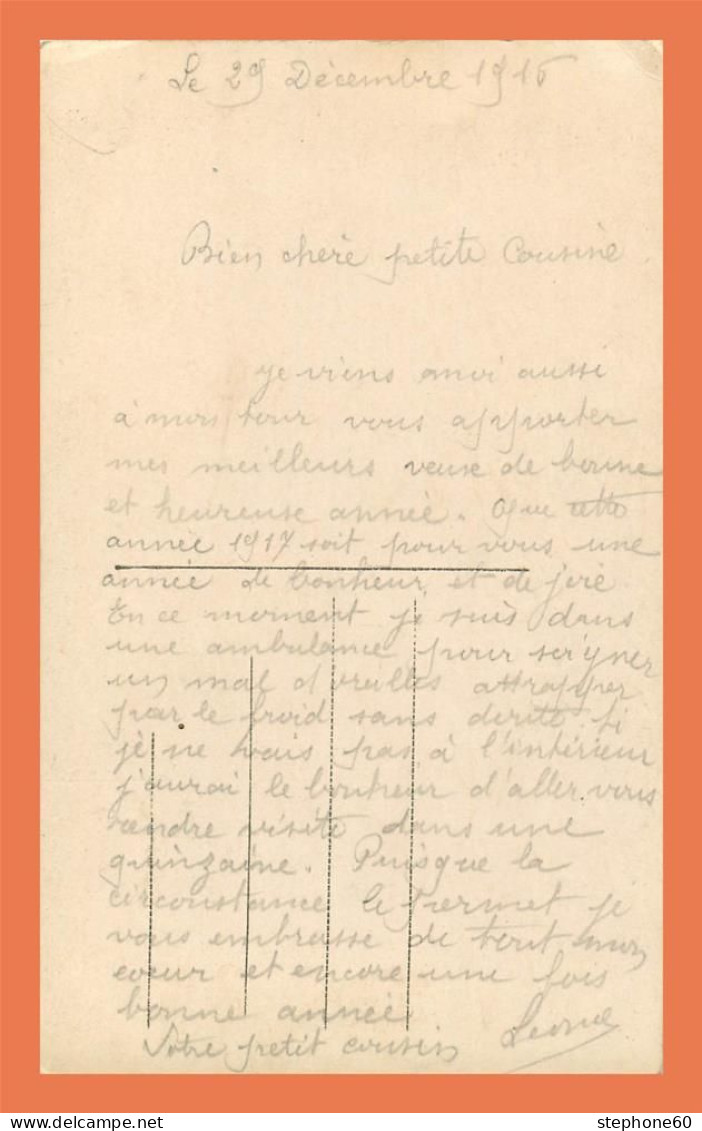 Le 29 Décembre 1916
Bien chère petite Cousine
je viens moi aussi
à mon tour vous apporter
mes meilleurs veuse de bonne
et heureuse année. Que cette
année 1917 soit pour vous une
année de bonheur et de joie
En ce moment je suis dans
une ambulance pour soigner
un mal d'oreilles attrapper
par le froid sans doute. Si
je ne vais pas à l'intérieur
j'aurai le bonheur d'aller vous
rendre visite dans une
quinzaine. Puisque la
circonstance le permet je
vous embrasse de tout mon
coeur et encore une fois
bonne année
Votre petit cousin
stephone60